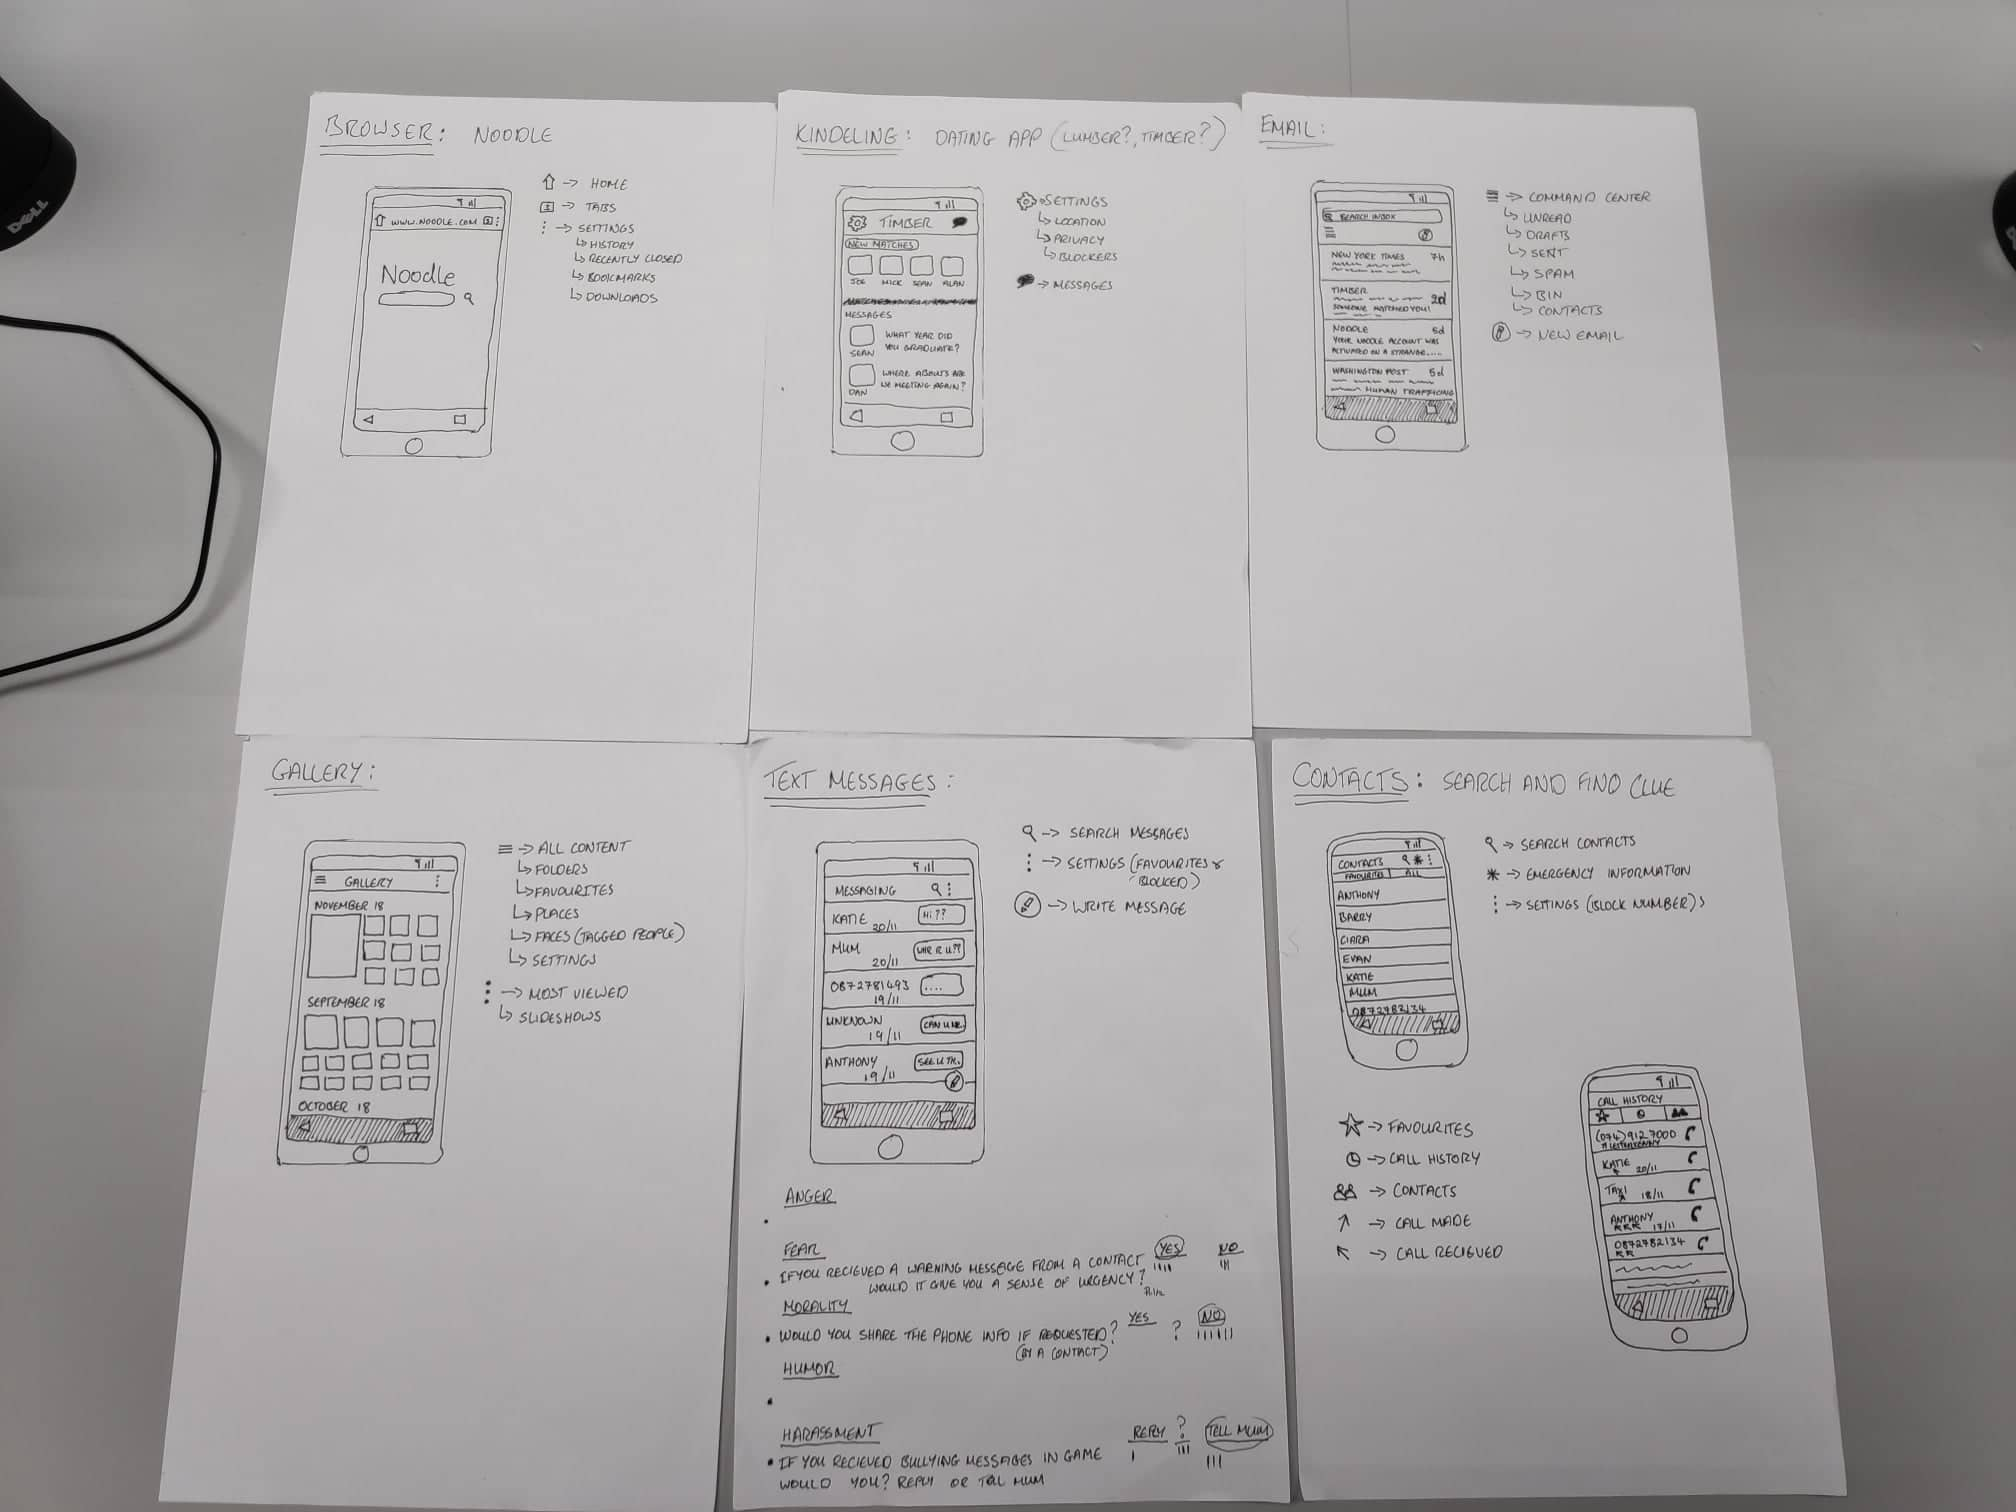 DELL
BROWSER: NOODLE
WWW.NOODLE.COM
Noodle
→ HOME
→ TABS
→ SETTINGS
↳ HISTORY
↳ RECENTLY CLOSED
↳ BOOKMARKS
↳ DOWNLOADS
KINDELING: DATING APP (LUMBER?, TIMBER?)
TIMBER
NEW MATCHES
JOE MICK SEAN ALAN
MESSAGES
WHAT YEAR DID
YOU GRADUATE?
SEAN
WHERE ABOUTS ARE
WE MEETING AGAIN?
DAN
→ SETTINGS
↳ LOCATION
↳ PRIVACY
↳ BLOCKERS
→ MESSAGES
EMAIL:
SEARCH INBOX
NEW YORK TIMES 7h
TIMBER
2d
SOMEONE MATCHED YOU!
NOODLE 5d
YOUR NOODLE ACCOUNT WAS
ACTIVATED ON A STRANGE.....
WASHINGTON POST 5d
HUMAN TRAFFICING
→ COMMAND CENTER
↳ UNREAD
↳ DRAFTS
↳ SENT
↳ SPAM
↳ BIN
↳ CONTACTS
→ NEW EMAIL
GALLERY:
GALLERY
NOVEMBER 18
SEPTEMBER 18
OCTOBER 18
→ ALL CONTENT
↳ FOLDERS
↳ FAVOURITES
↳ PLACES
↳ FACES (TAGGED PEOPLE)
↳ SETTINGS
→ MOST VIEWED
↳ SLIDESHOWS
TEXT MESSAGES:
MESSAGING
KATIE Hi??
20/11
MUM WHR R U??
20/11
0872781493 ....
19/11
UNKNOWN CAN U ME.
19/11
ANTHONY SEE U TH.
19/11
→ SEARCH MESSAGES
→ SETTINGS (FAVOURITES &
BLOCKED)
→ WRITE MESSAGE
ANGER
FEAR
• IF YOU RECIEVED A WARNING MESSAGE FROM A CONTACT YES NO
WOULD IT GIVE YOU A SENSE OF URGENCY?
MORALITY
• WOULD YOU SHARE THE PHONE INFO IF REQUESTED? YES ? NO
(BY A CONTACT)
HUMOR
HARASSMENT REPLY ? TELL MUM
• IF YOU RECIEVED BULLYING MESSAGES IN GAME
WOULD YOU? REPLY OR TELL MUM
CONTACTS: SEARCH AND FIND CLUE
CONTACTS
FAVOURITES ALL
ANTHONY
BARRY
CIARA
EVAN
KATIE
MUM
0872782134
→ SEARCH CONTACTS
→ EMERGENCY INFORMATION
→ SETTINGS (BLOCK NUMBER)S
→ FAVOURITES
→ CALL HISTORY
→ CONTACTS
→ CALL MADE
→ CALL RECIEVED
CALL HISTORY
(074) 912 7000
KATIE 20/11
TAXI 18/11
ANTHONY
17/11
0872782134